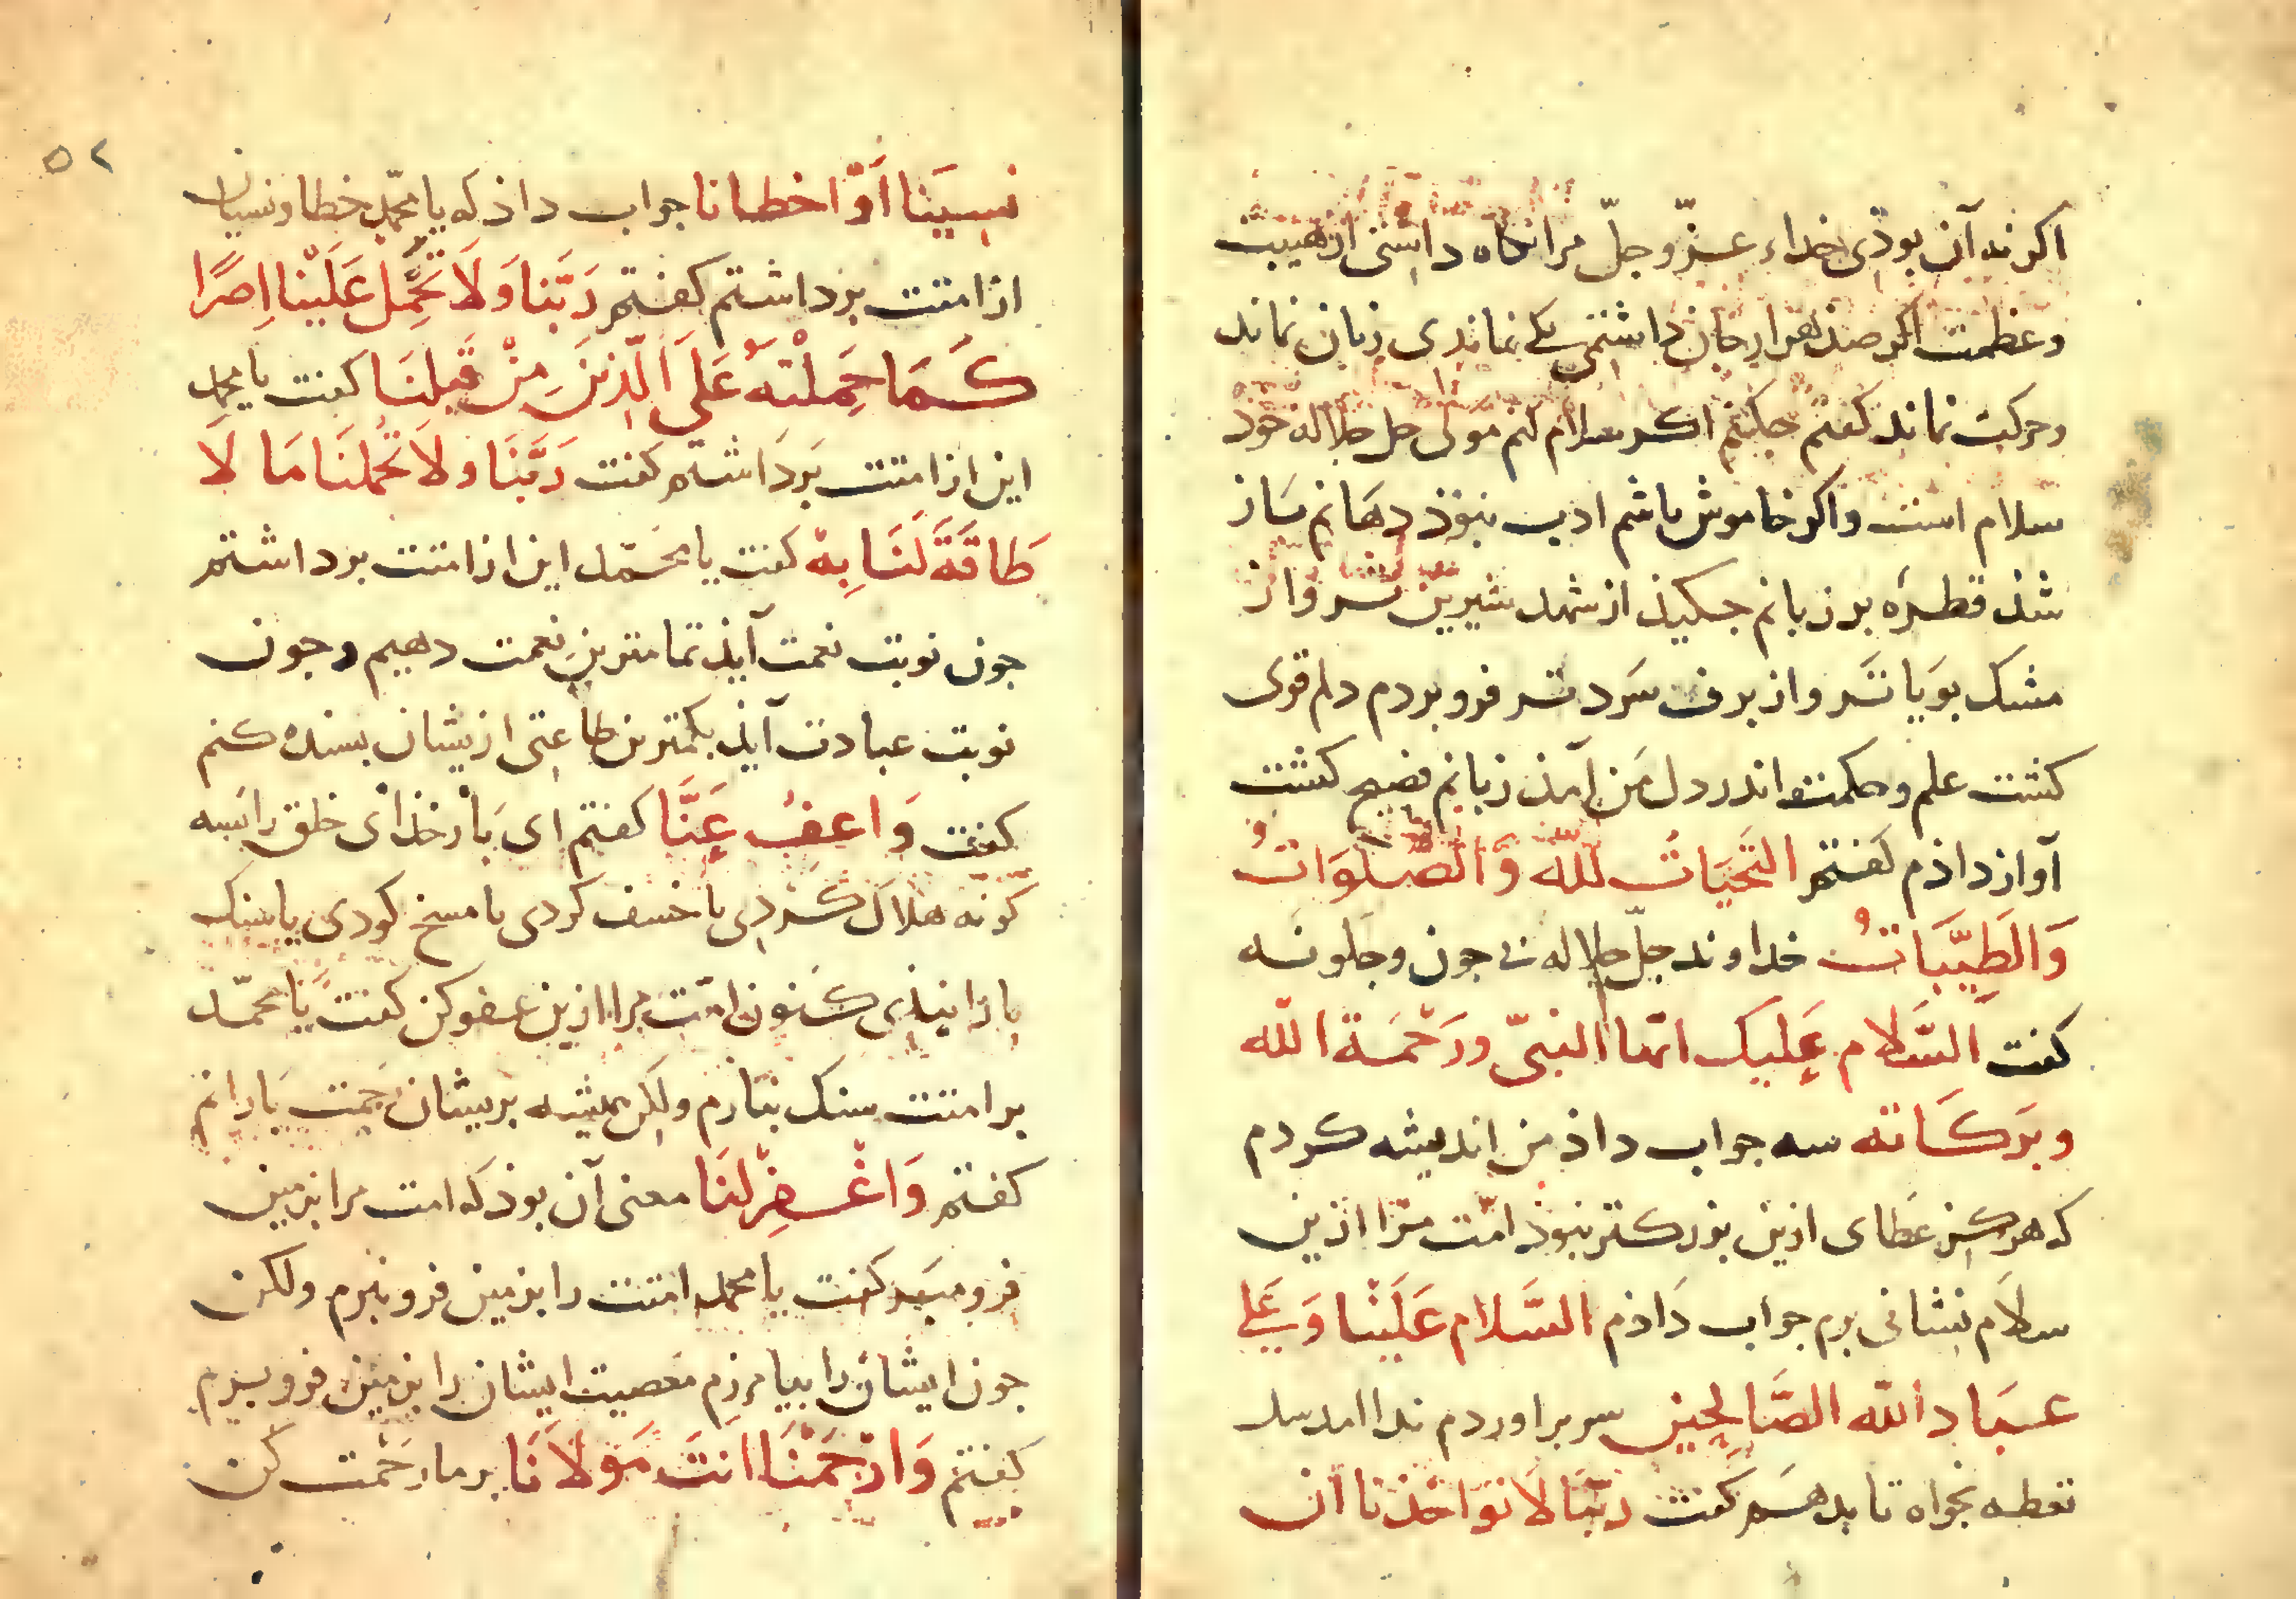 اکر نه آن بوذی خداء عزّ وجلّ مرا نکاه داشتی از هیبت
وعظمت اکر صذ هزار جان داشتمی یکی نماندی زبان نماند
وحرکت نماند کفتم جکنم اکر سلام کنم مولی جل جلاله خوذ
سلام است واکر خاموش باشم ادب نبوذ دهانم باز
شذ قطرهٔ بر زبانم جکیذ از شهد شیرین تر واز
مشک بویا تر واز برف سرد تر فرو بردم دلم قوی
کشت علم وحکمت اندر دل من آمذ زبانم فصیح کشت
آواز داذم کفتم التَّحَیَاتُ لله وَالصلوَاتُ
وَالطَیِّبَاتُ خداوند جلّ جلاله بی جون وجکونه
کفت اَلسَّلام عَلیک ایّها النبیّ ورَحْمَة الله
وبَرَکَاته سه جواب داذ من اندیشه کردم
که هرکز عَطای ازین بزرکتر نبوذ امّت مرا ازین
سلاَم نشانی برم جواب دَاذم السَّلام عَلَیْنا وَعَلی
عبَاد الله الصَّالِحِین سر براوردم ندا امد سل
تعطه بخواه تا بدهم کفت ربّنَا لَا تؤاخذنا ان
نسِیَنا اَوْ اخطانا جواب داذ که یا محمّد خطا ونسیان
از امتت برداشتم کفتم رَبَّنا وَلَا تَحْمِل عَلَیْنا اِصرًا
کَمَا حَمَلْتَهُ عَلَی الَّذِینَ مِنْ قَبلنَا کفت یا محمد
این از امتت بَردَاشتم کفت رَبَّنَا ولاَ تُحَملنَا مَا لَا
طَاقَةَ لَنَا بِهْ کفت یا محَمّد این از امتت برداشتم
جون نوبت نعمت آیذ تمامترین نعمت دهیم وجون
نوبت عبادت آیذ بکمترین طاعتی ازیشان بسنده کنم
کفت وَاعفُ عَنَّا کفتم ای بَار خذای خلق را بسه
کونه هلاک کردی یا خسف کردی یا مسخ کردی یا سنک
بارانیذی کنون امّت مرا ازین عفو کن کفت یَا محمّد
بر امتت سنک نبارم ولکن همیشه بریشان رحمت بَارانم
کفتم وَاغْفِرْلنَا معنی آن بوذ که امت مرا بزمین
فرو مبر کفت یا محمد امتت را بزمین فرو نبرم ولکن
جون ایشان را بیامرزم معصیت ایشان را بزمین فرو برم
کفتم وَارْحَمْنَا اَنتَ مَوْلاَنَا بر ما رحْمت کن
٥٢